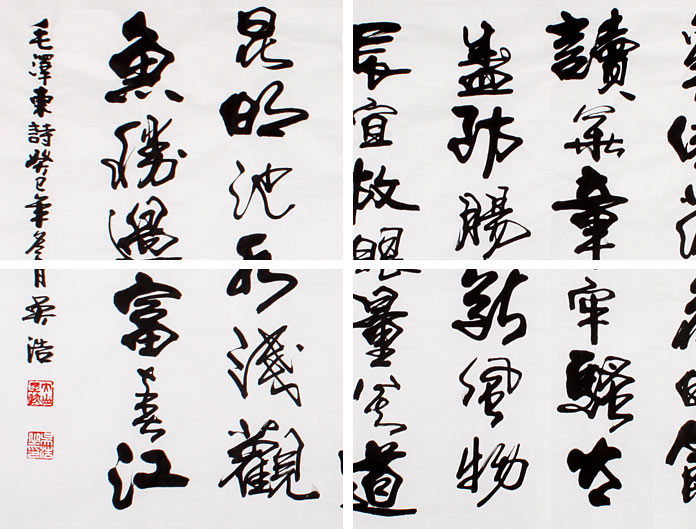 讀華章牢騷太
盛防腸斷風物
長宜放眼量莫道
昆明池水淺觀
魚勝過富春江
毛澤東詩癸巳年冬月吳浩